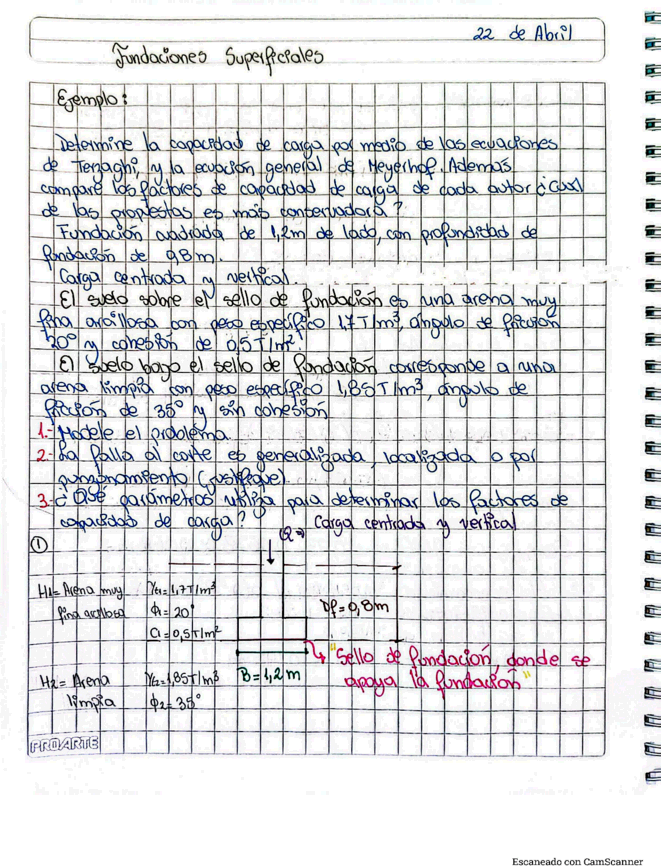 22 de Abril
Fundaciones Superficiales
Ejemplo:
Determine la capacidad de carga por medio de las ecuaciones
de Terzaghi, y la ecuación general de Meyerhof. Además
compare los factores de capacidad de carga de cada autor ¿Cuál
de las propuestas es más conservadora?
Fundación cuadrada de 1,2m de lado, con profundidad de
fundación de 0,8m.
Carga centrada y vertical.
El suelo sobre el sello de fundación es una arena muy
fina arcillosa con peso específico 1,7T/m³, ángulo de fricción
20° y cohesión de 0,5T/m².
El suelo bajo el sello de fundación corresponde a una
arena limpia con peso específico 1,85T/m³, ángulo de
fricción de 35° y sin cohesión
1.- Modele el problema.
2.- La falla al corte es generalizada, localizada o por
punzonamiento (justifique).
3.- ¿Qué parámetros utiliza para determinar los factores de
capacidad de carga?
Q => Carga centrada y vertical
①
H1= Arena muy
fina arcillosa
γt1=1,7T/m³
ϕ1= 20°
C1=0,5T/m²
Df=0,8m
B=1,2m
"Sello de fundación, donde se
apoya la fundación"
H2= Arena
limpia
γt2=1,85T/m³
ϕ2=35°
PROARTE
Escaneado con CamScanner